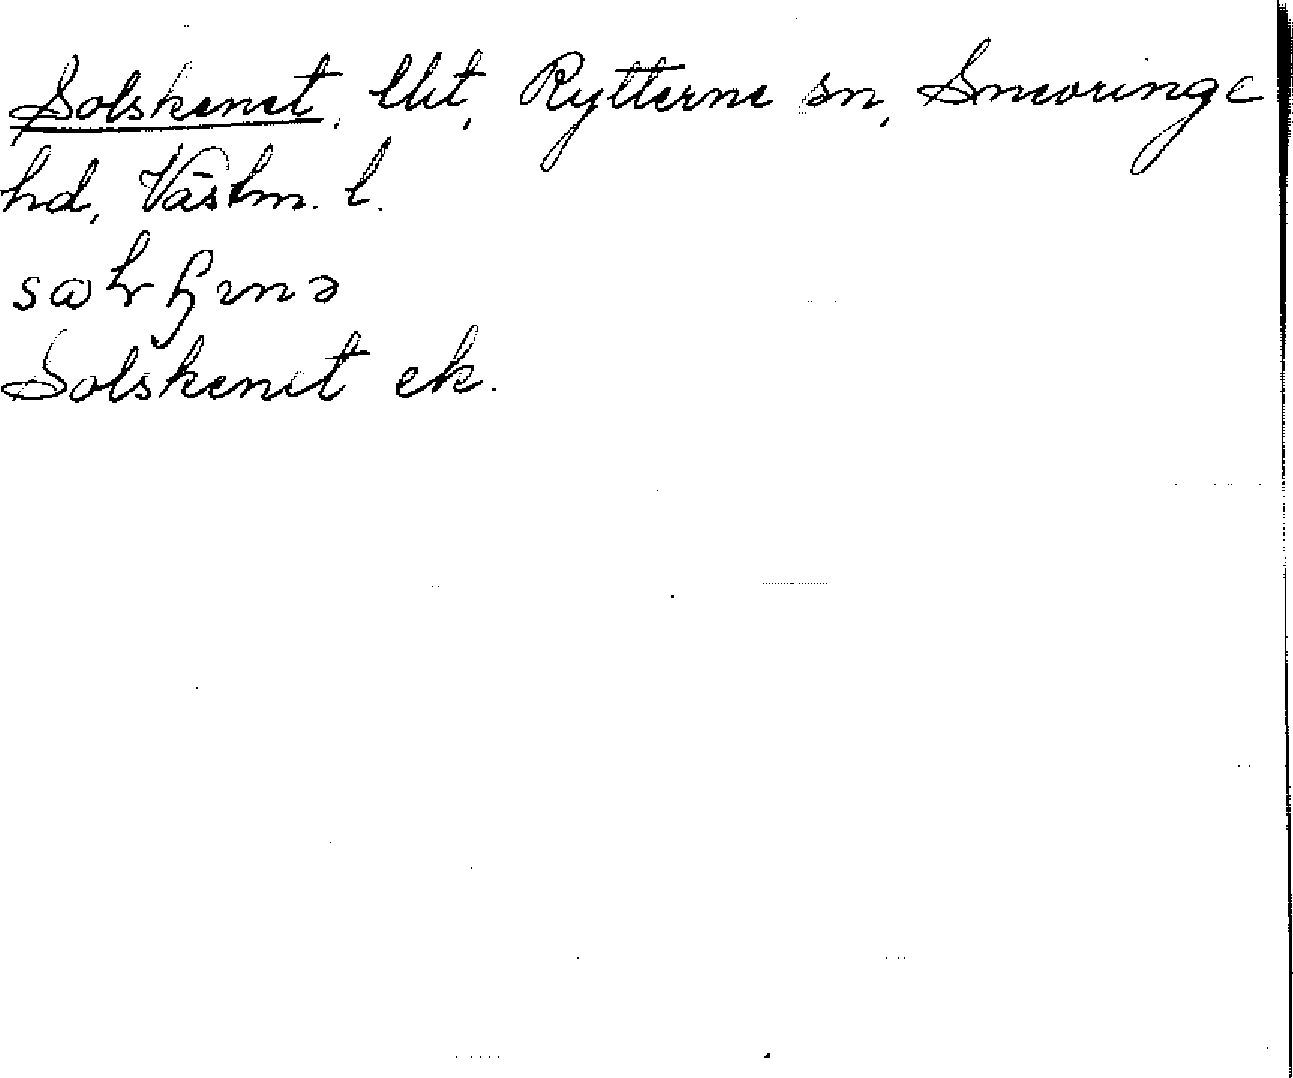 Solskenet, lht, Rytterne sn, Snevringe
hd, Västm. l.
Solskenet ek.